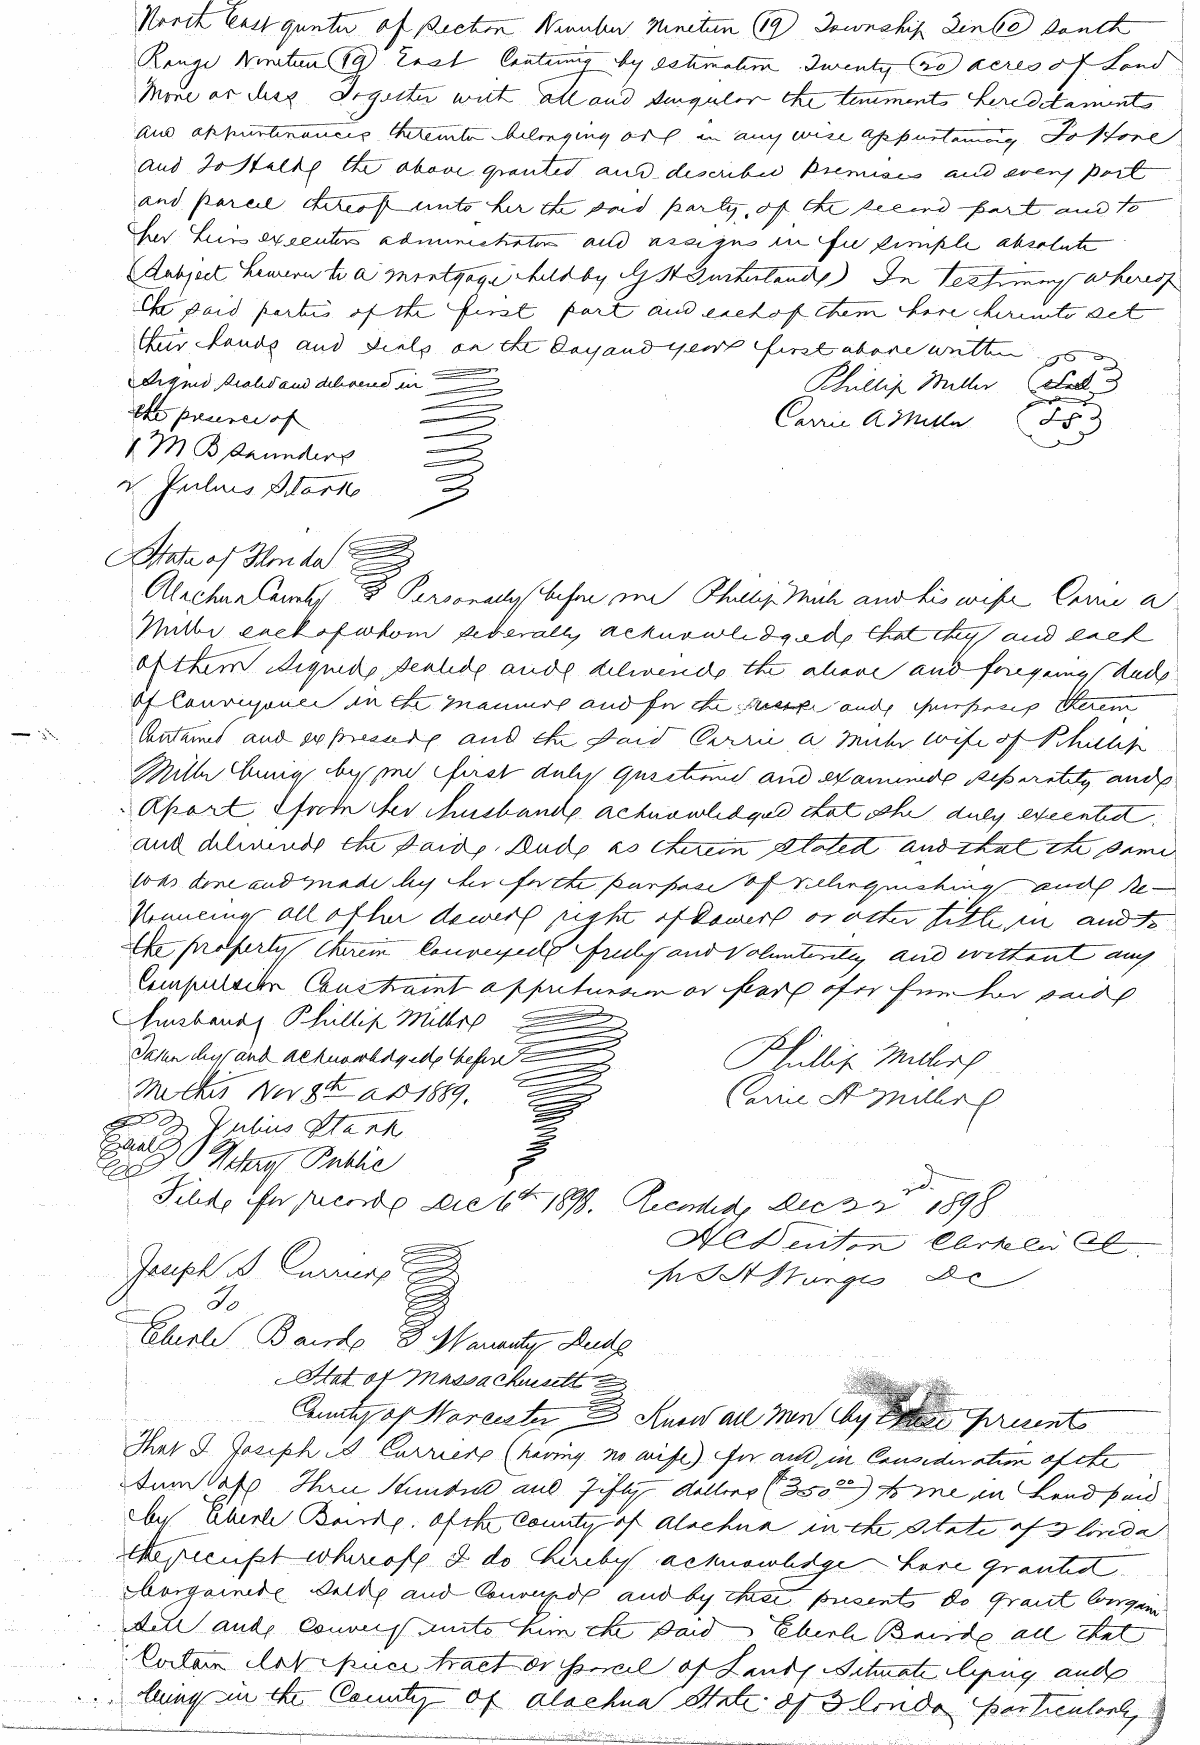 North East quarter of Section Number Nineteen (19) Township Ten (10) South
Range Nineteen (19) East Containing by estimation Twenty (20) acres of Land
More or less Together with all and singular the tenements hereditaments
and appurtenances thereunto belonging or in any wise appertaining To Have
and To Hold the above granted and described Premises and every part
and parcel thereof unto her the said party of the second part and to
her heirs executors administrators and assigns in fee simple absolute
(Subject however to a mortgage held by G H Sutherland) In Testimony whereof
the said parties of the first part and each of them have hereunto set
their hands and seals on the day and year first above written
Signed sealed and delivered in
Phillip Miller Seal
the presence of
Carrie A Miller LS
1 M B Saunders
2 Julius Stark
State of Florida
Alachua County Personally before me Phillip Miller and his wife Carrie a
Miller each of whom severally acknowledged that they and each
of them signed sealed and delivered the above and foregoing deed
of Conveyance in the manner and for the and purposes therein
Contained and expressed and the said Carrie a Miller wife of Phillip
Miller being by me first duly questioned and examined separately and
Apart from her husband acknowledged that she duly executed
and delivered the said Deed as therein stated and that the same
was done and made by her for the purpose of relinquishing and Re-
Nouncing all of her dower right of Dower or other title in and to
the property therein Conveyed freely and Voluntarily and without any
Compulsion Constraint apprehension or fear of or from her said
husband Phillip Miller
Taken by and acknowledged before
Phillip Miller
Me this Nov 8th A D 1889.
Carrie A Miller
Julius Stark
Seal Notary Public
Filed for record Dec 6th 1898. Recorded Dec 22nd 1898
H C Denton Clerk Cir Ct
Joseph S Currier
pr S H Wurges D C
To
Eberle Baird Warranty Deed
Stat of Massachusetts
County of Worcester Know all Men by these presents
That I Joseph S Currier (having no wife) for and in Consideration of the
Sum of Three Hundred and Fifty dollars ($350 00) to me in hand paid
by Eberle Baird. of the County of Alachua in the State of Florida
the receipt whereof I do hereby acknowledge have granted
bargained sold and Conveyed and by these presents do grant bargain
sell and convey unto him the said Eberle Baird all that
Certain lot piece tract or parcel of Land Situate lying and
being in the County of Alachua State of Florida particularly